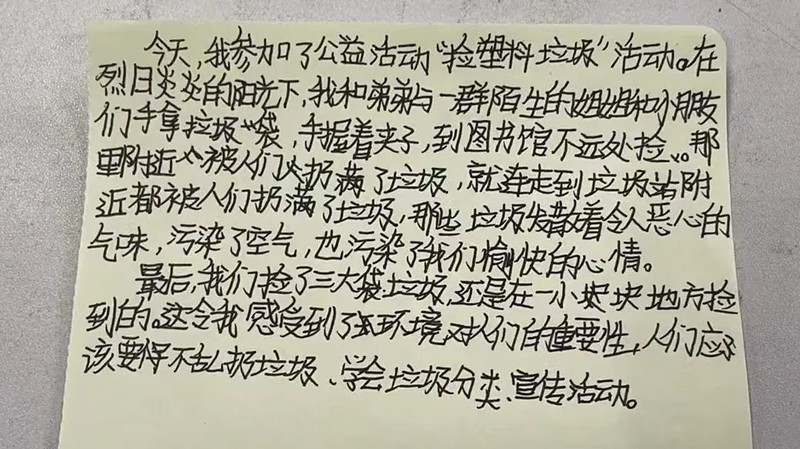 今天,我参加了公益活动“捡塑料垃圾”活动。在
烈日炎炎的阳光下,我和弟弟与一群陌生的姐姐和小朋友
们手拿垃圾袋,手握着夹子,到图书馆不远处捡。那
里附近被人们扔满了垃圾,就连走到垃圾站附
近都被人们扔满了垃圾,那些垃圾发散着令人恶心的
气味,污染了空气,也污染了我们愉快的心情。
最后,我们捡了三大袋垃圾,还是在一小块地方捡
到的。这令我感受到了环境对人们的重要性,人们应
该要得不乱扔垃圾、学会垃圾分类、宣传活动。